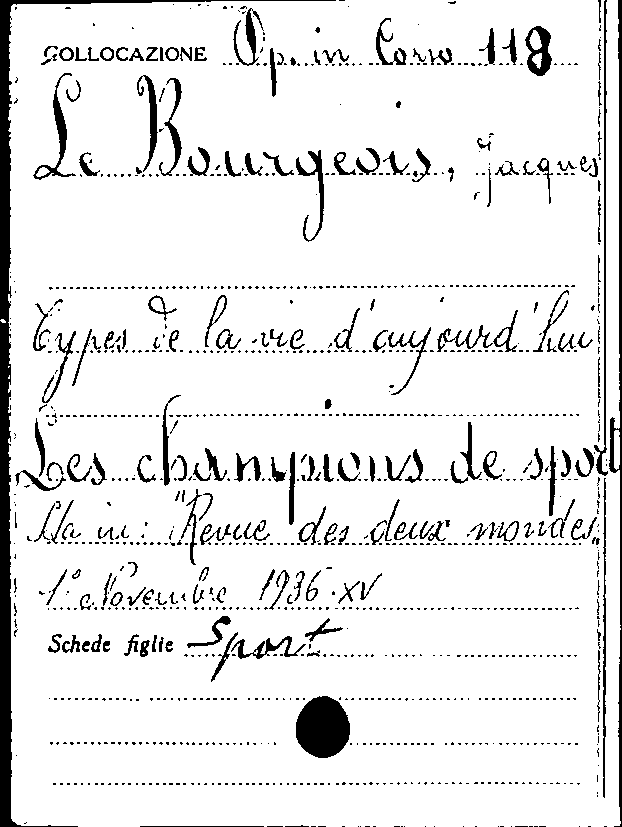 COLLOCAZIONE Op. in Corso 118
Le Bourgeois, Jacques
Types de la vie d'aujourd'hui
Les champions de sport
Sta in: "Revue des deux mondes„
1° Novembre 1936-XV
Schede figlie Sport